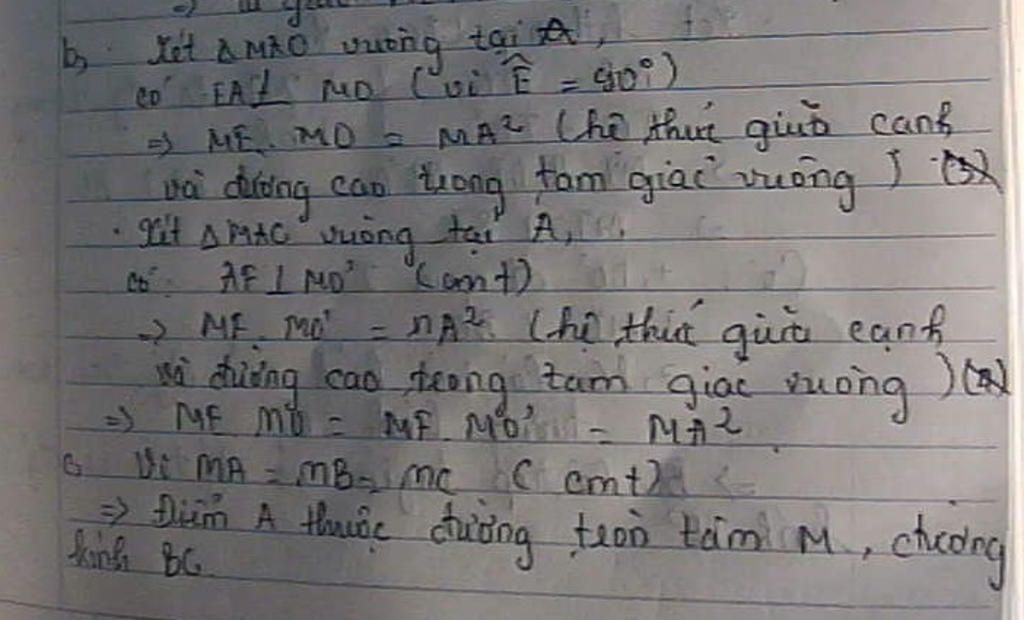 =) tứ giác
b, . Xét ΔMAO vuông tại A,
có EA⊥ MO (vì Ê = 90°)
=> ME. MO = MA² (hệ thức giữa cạnh
và đường cao trong tam giác vuông)
. Xét ΔMAC vuông tại A,
có AF⊥MO' (cmt)
=> MF. MO' = MA² (hệ thức giữa cạnh
và đường cao trong tam giác vuông)
=> ME MO = MF. MO' = MA²
c, Vì MA = MB = MC (cmt)
=> Điểm A thuộc đường tròn tâm M, đường
kính BC